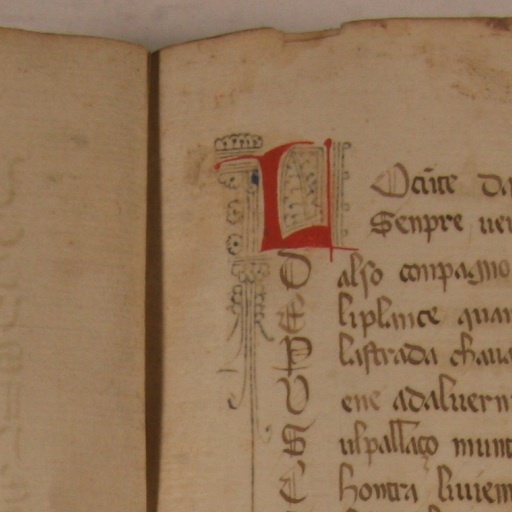 L Ocũte da
Senpre uer
D also conpagno
E liplance quan
P lastrada chaua
V ene adaluern
S ulpallaço munt
C hontra liuiem